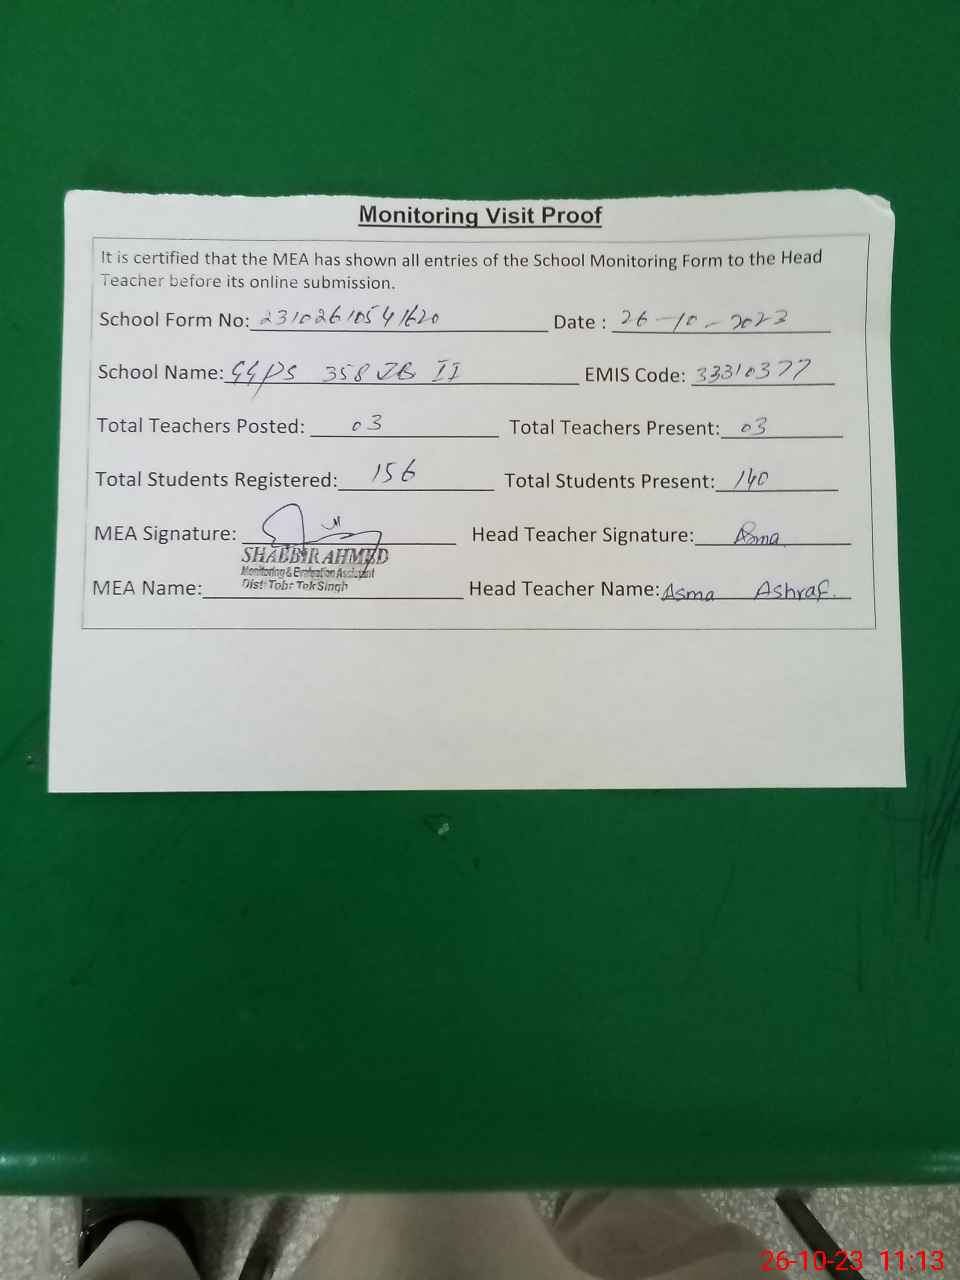 Monitoring Visit Proof
It is certified that the MEA has shown all entries of the School Monitoring Form to the Head
Teacher before its online submission.
School Form No: 23102610541620 Date : 26-10-2023
School Name: GGPS 358 JB II EMIS Code: 33310377
Total Teachers Posted: 03 Total Teachers Present: 03
Total Students Registered: 156 Total Students Present: 140
MEA Signature: Head Teacher Signature: Asma
SHABBIR AHMED
Monitoring & Evaluation Assistant
Dist: Toba Tek Singh
MEA Name: Head Teacher Name: Asma Ashraf.
26-10-23 11:13